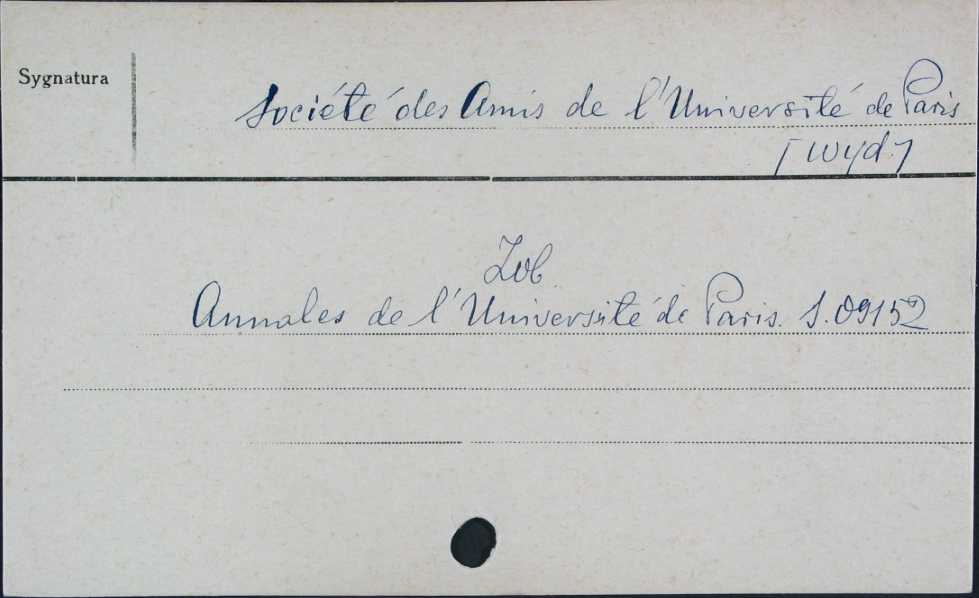 Sygnatura
Société des Amis de l'Université de Paris
[wyd.]
Zob.
Annales de l'Université de Paris. S. 09152